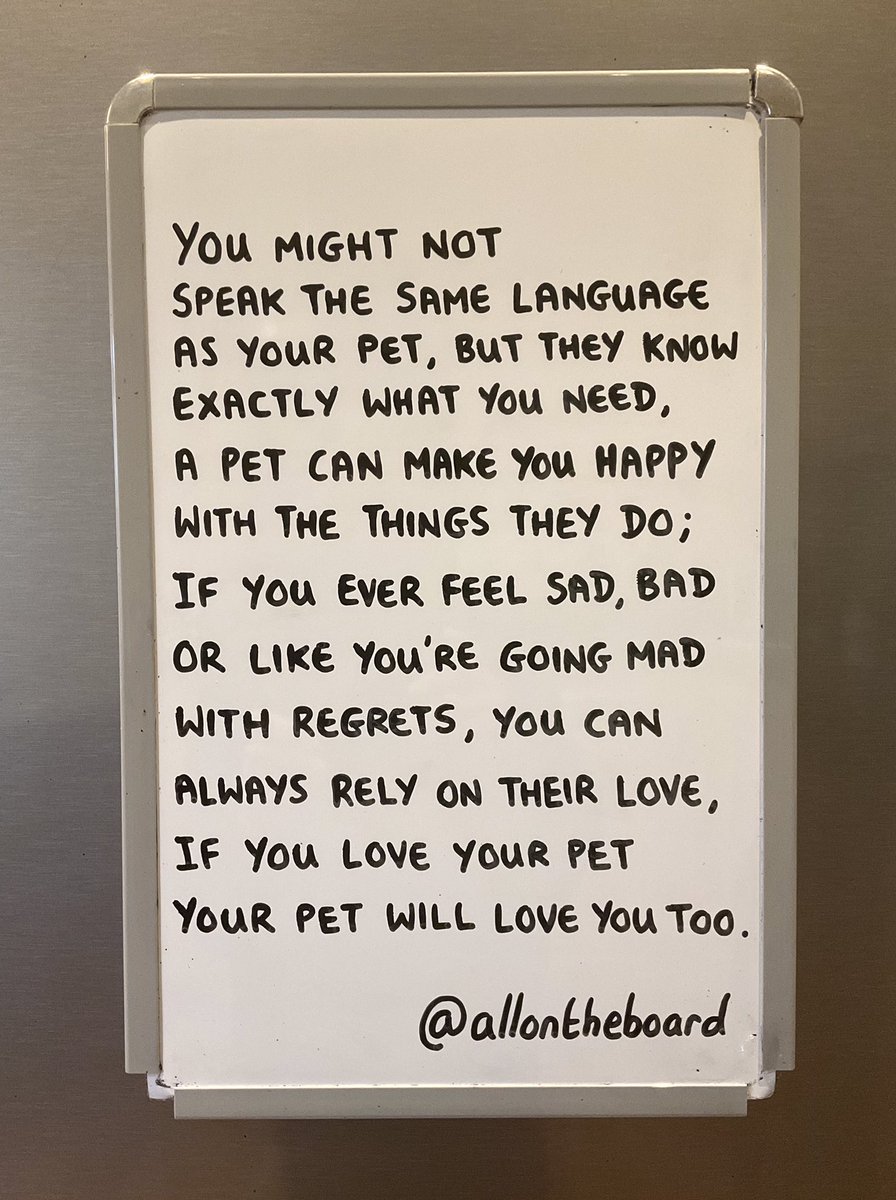 YOU MIGHT NOT
SPEAK THE SAME LANGUAGE
AS YOUR PET, BUT THEY KNOW
EXACTLY WHAT YOU NEED,
A PET CAN MAKE YOU HAPPY
WITH THE THINGS THEY DO;
IF YOU EVER FEEL SAD, BAD
OR LIKE YOU'RE GOING MAD
WITH REGRETS, YOU CAN
ALWAYS RELY ON THEIR LOVE,
IF YOU LOVE YOUR PET
YOUR PET WILL LOVE YOU TOO.
@allontheboard